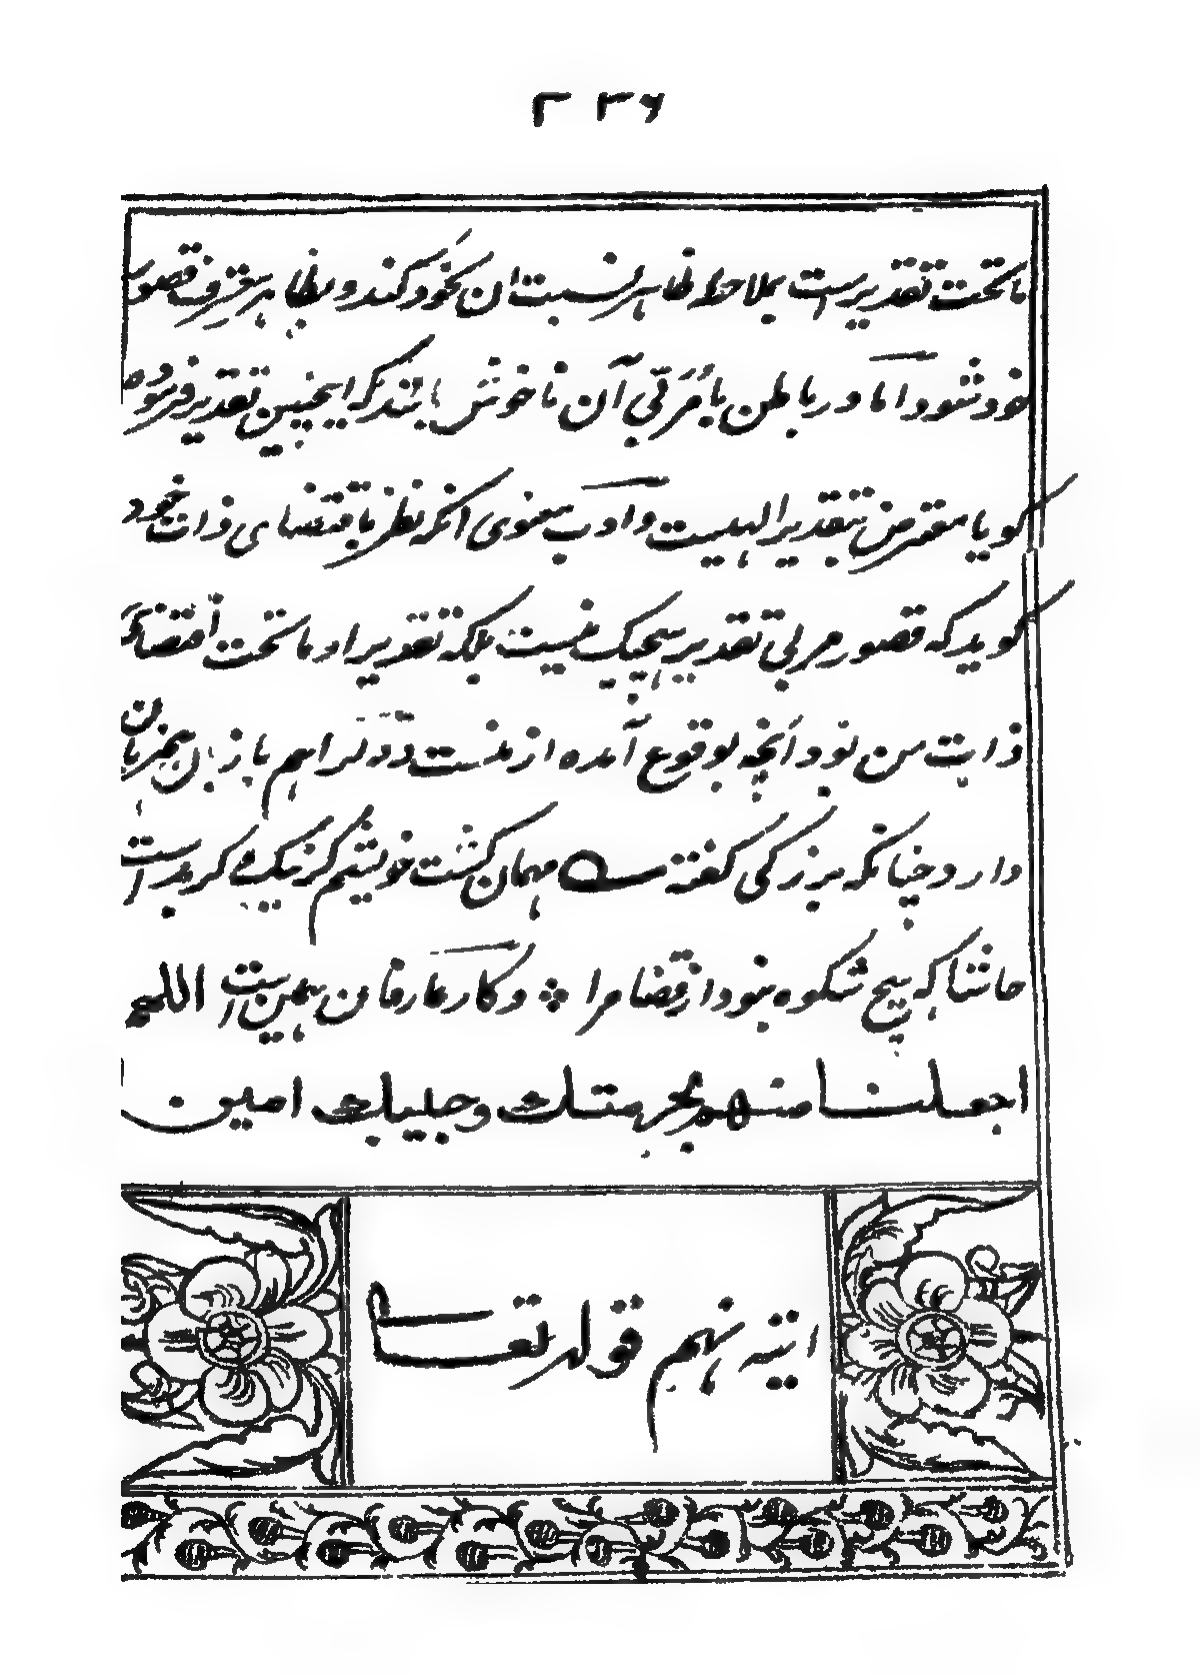 ۲۳۶
ما تحت تقدیر ست بملاحظه ظاهر نسبت ان بخود کند و بظاهر معترف قصور
خود شود اما در باطن با مربی آن ناخوش باشد که اینچنین تقدیر فرموده
کویا معترض بتقدیر الهیست و ادب معنوی انکه نظر باقتضای ذات خود
کوید که قصور مربی تقدیر هیچیک نیست بلکه تقدیر او ما تحت اقتضای
ذات من بود و انچه بوقوع آمده از منست دو لب را هم باز بان همزبان
دارد چنانکه بزرکی کفته همان کشت خویشتم کر نیک کر بدست
حاشا که هیچ شکوه بود از قضا مرا و کار عارفان همین است اللهم
اجعلنا منهم بحرمتك وحبیبك امین
اینه نهم قوله تعا